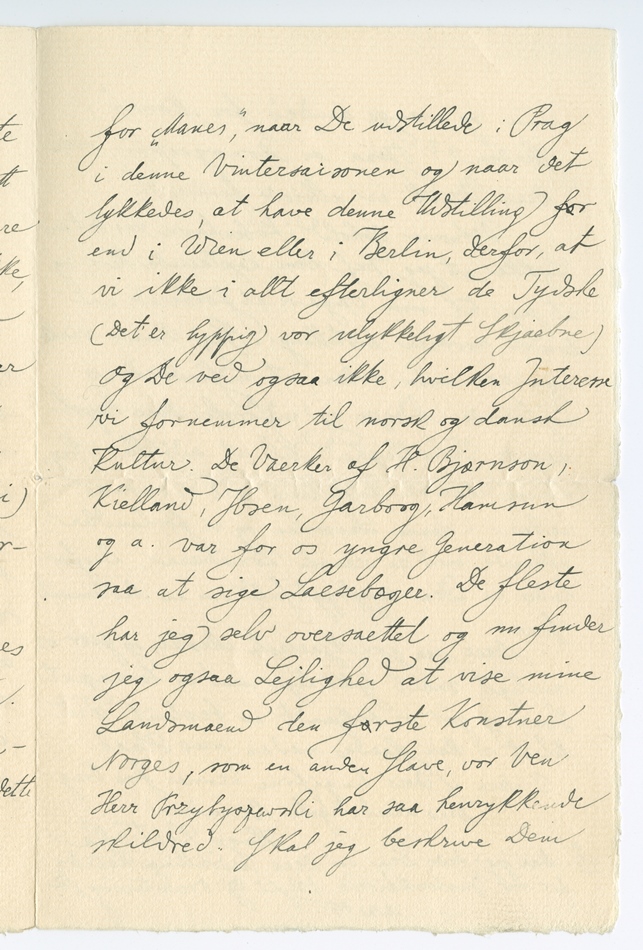 te
for „Manes", naar De udstillede i Prag
tt
i denne Vintersaisonen og naar det
re
lykkedes, at have denne Udstilling før
ke,
end i Wien eller i Berlin, derfor, at
vi ikke i allt efterligner de Tydske
(det er hyppig vor ulykkeligt Skjaebne)
er
Og De ved ogsaa ikke, hvilken Interesse
vi fornemmer til norsk og dansk
Kultur. De Vaerker af H. Bjørnson,
i)
Kielland, Ibsen, Garborg, Hamsun
r-
og a. var for os yngre Generation
saa at sige Laesebøger. De fleste
es
har jeg selv oversaettet og nu finder
jeg ogsaa Lejlighed at vise mine
Landsmaend den første Konstner
Norges, som en anden Slave, vor Ven
dette
Herr Przybyszewski har saa henrykkende
skildred. Skal jeg beskrive Dem